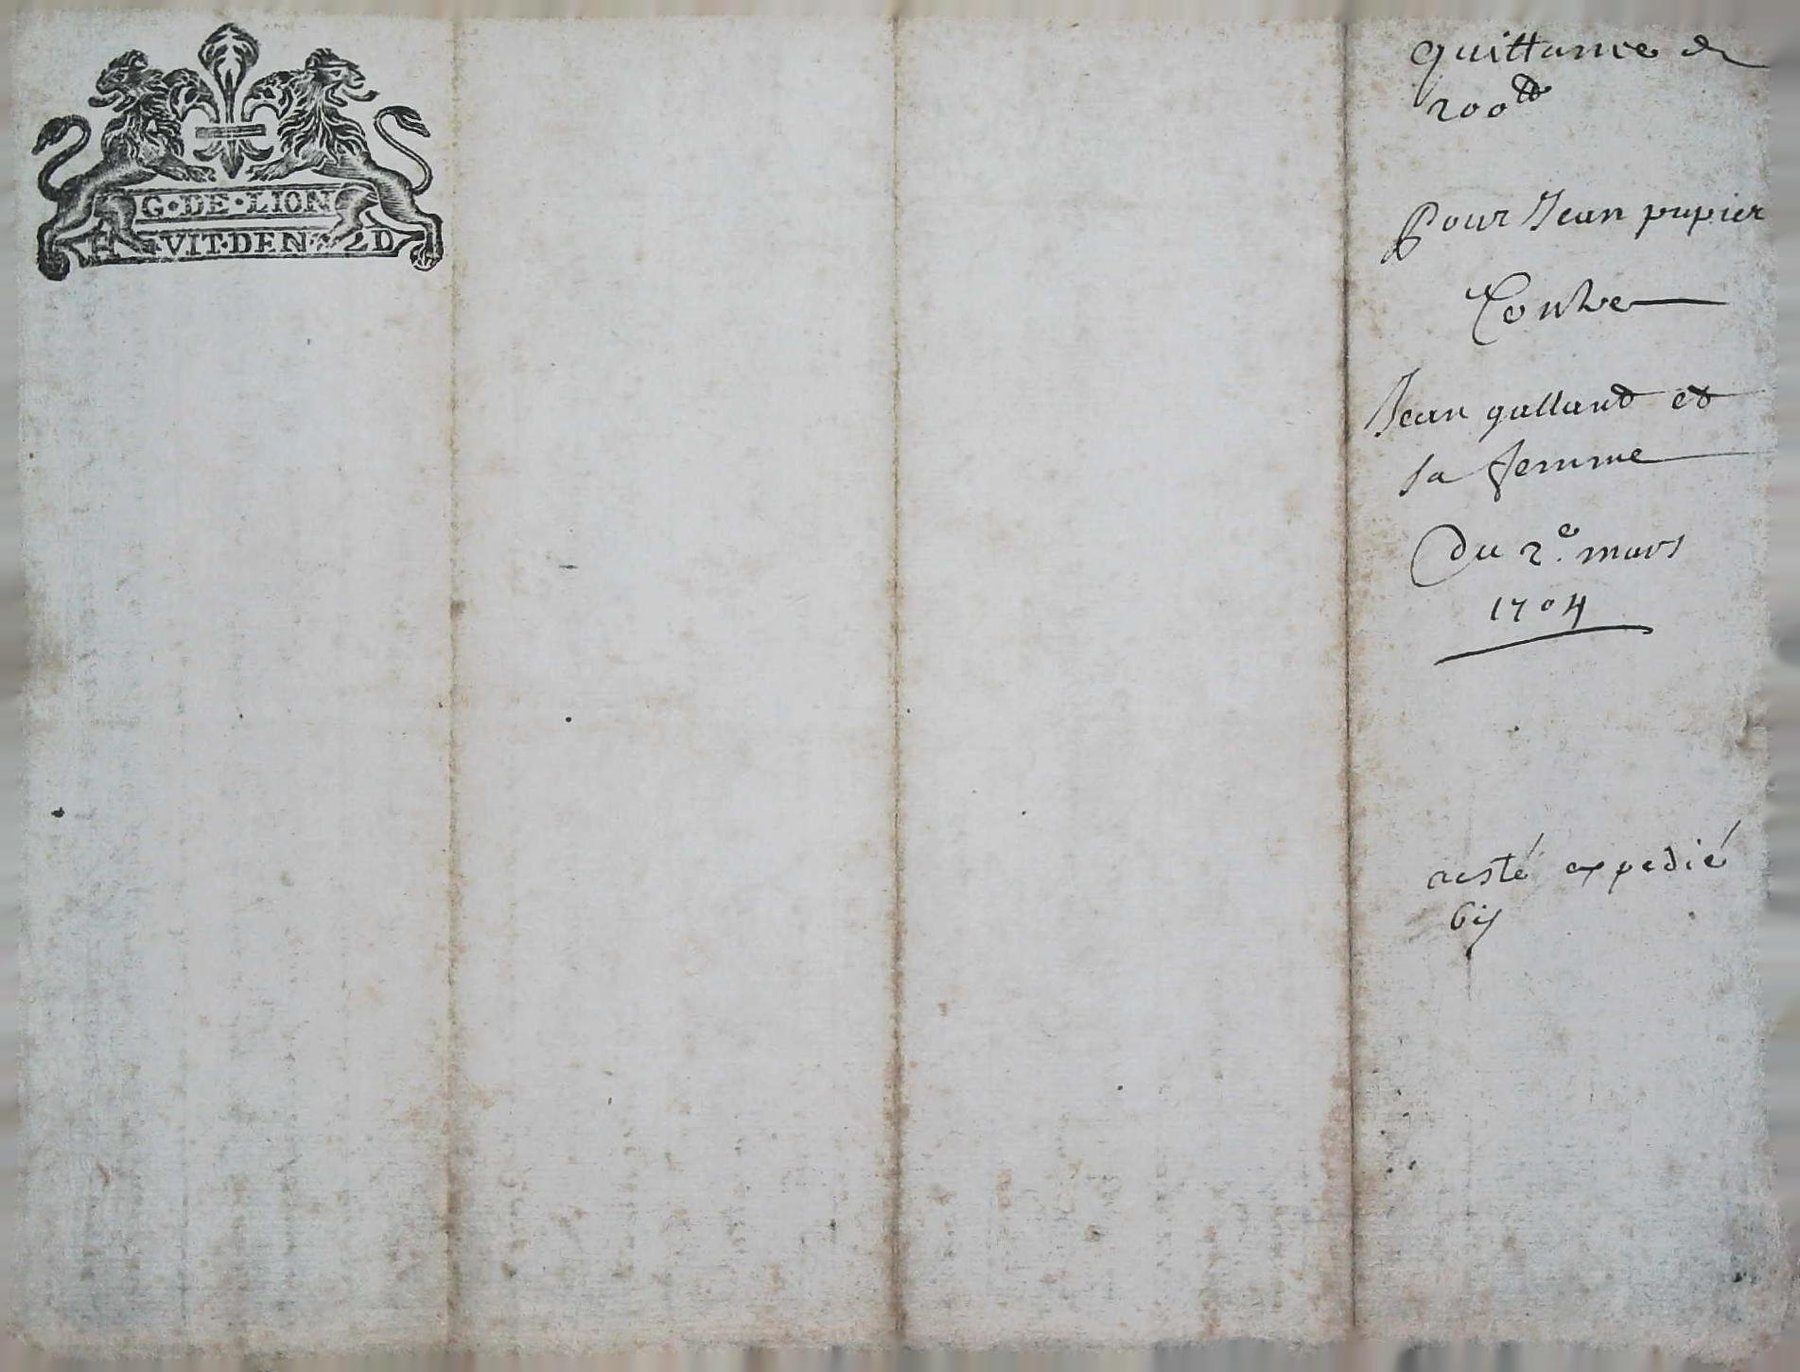 G·DE·LION
HUIT·DEN· D
quittance de
200tt
Pour Jean papier
Contre
Jean galland et
sa femme
Du 2e. mars
1704
esté expedié